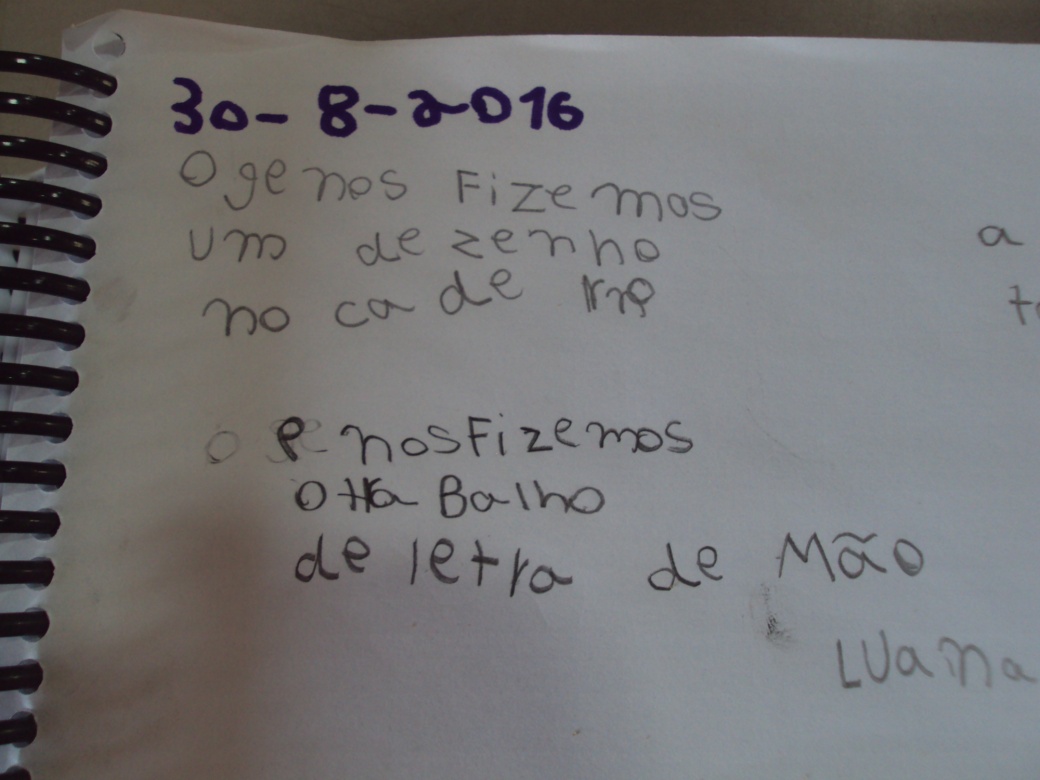 30-8-2016
O ge nos Fizemos
um de zenho
no ca de rno
a
o e nos Fizemos
o tra Balho
de letra de Mão
LUana